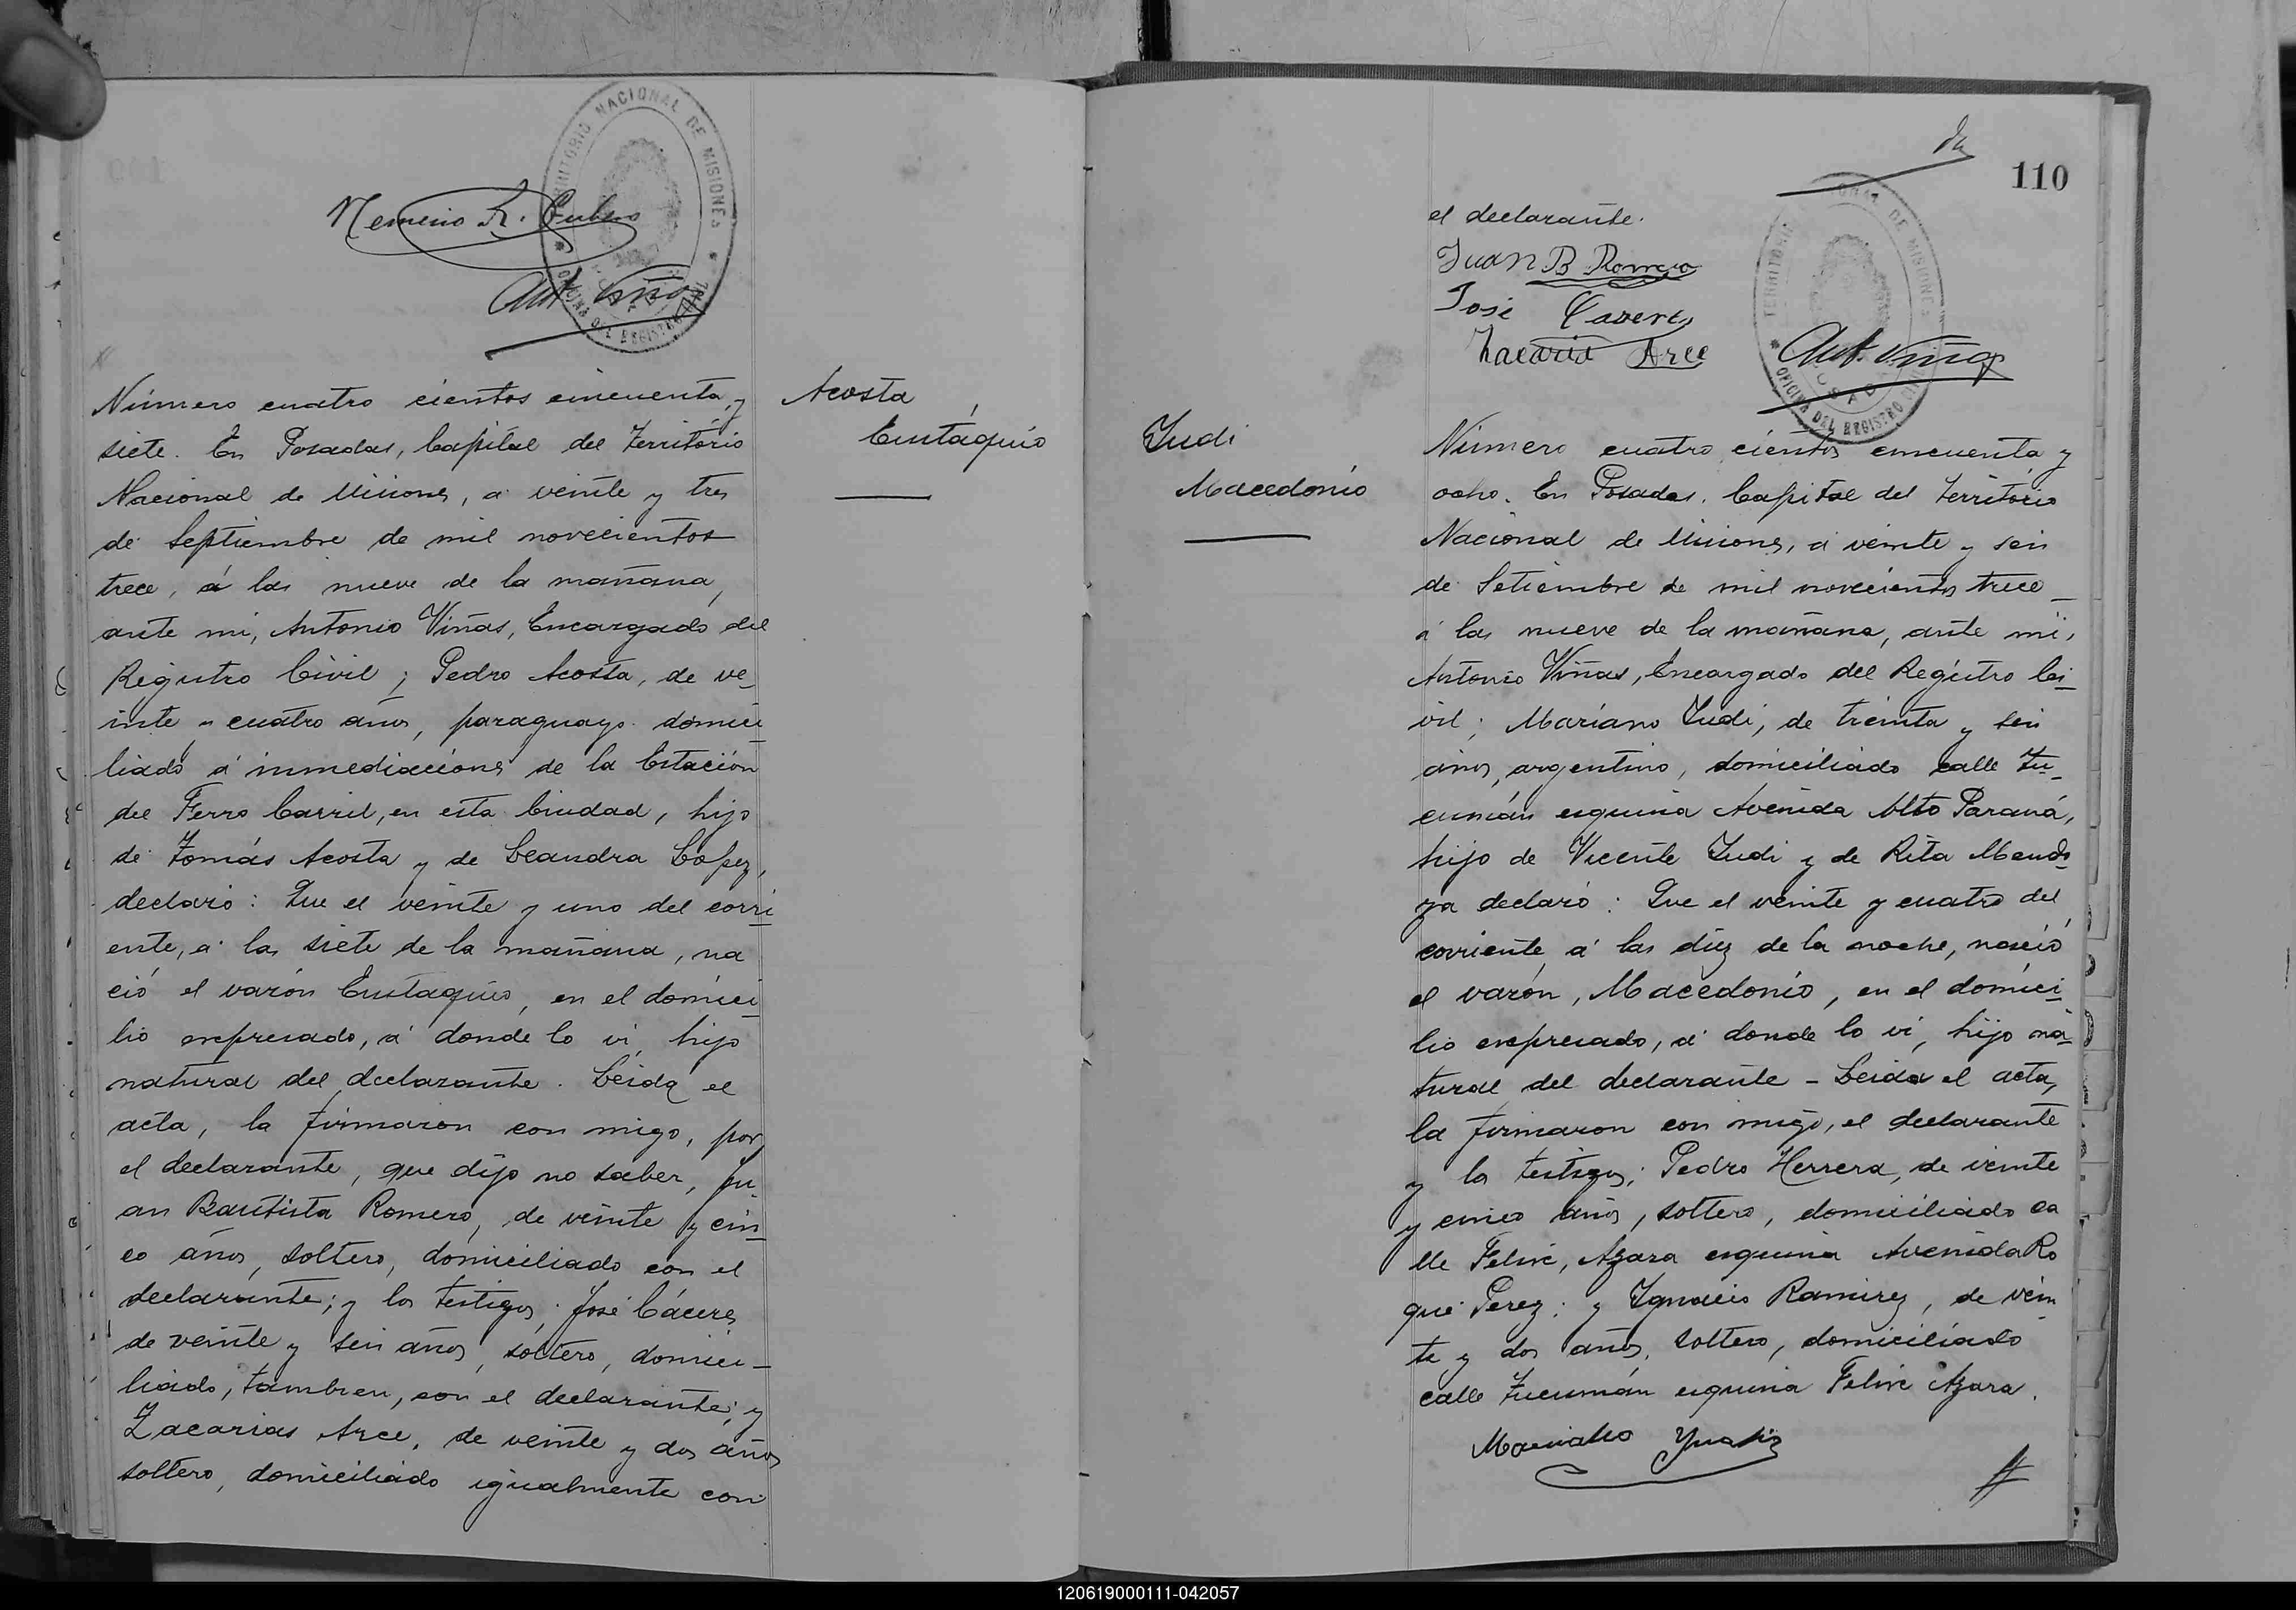 TERRITORIO NACIONAL DE MISIONES
OFICINA DEL REGISTRO CIVIL
Nemecio R.
Ant. Viñas
Número cuatro cientos cincuenta y
siete. En Posadas, Capital del Território
Nacional de Misiones, a veinte y tres
de Septiembre de mil novecientos
trece, á las nueve de la mañana,
ante mi, Antonio Viñas, Encargado del
Registro Civil; Pedro Acosta, de ve-
inte y cuatro años, paraguayo. domici
liado á inmediaciones de la Estación
del Ferro Carril, en esta Ciudad, hijo
de Tomás Acosta y de Leandra Lopez,
declaró: Que el veinte y uno del corri
ente, a las siete de la mañana, na
ció el varón Eustaquio, en el domici-
lio expresado, á donde lo vi, hijo
natural del declarante. Leida el
acta, la firmaron con migo, por
el declarante, que dijo no saber, Ju-
an Bautista Romero, de veinte y cin-
co años, soltero, domiciliado con el
declarante; y los testigos; José Cáceres,
de veinte y seis años, soltero, domici-
liado, tambien, con el declarante; y
Zacarias Arce, de veinte y dos años
soltero, domiciliado igualmente con
Acosta
Eustáquio
110
el declarante.
Juan B Romero
José Caseres
Zacaria Arce
TERRITORIO NACIONAL DE MISIONES
OFICINA DEL REGISTRO CIVIL
POSADAS
Ant. Viñas
Judi
Macedónio
Número cuatro cientos cincuenta y
ocho. En Posadas, Capital del Território
Nacional de Misiones, á veinte y seis
de Setiembre de mil novecientos trece
á las nueve de la mañana, ante mi,
Antonio Viñas, Encargado del Registro Ci-
vil; Mariano Judi, de treinta y seis
años, argentino, domiciliado calle Tu-
cumán esquina Avenida Alto Paraná,
hijo de Vicente Judi y de Rita Mendo-
za declaró: Que el veinte y cuatro del
corriente á las diez de la noche, nació
el varón, Macedónio, en el domici-
lio expresado, á donde lo vi, hijo na-
tural del declarante - Leida el acta,
la firmaron con migo, el declarante
y los testigos; Pedro Herrera, de veinte
y cinco años, soltero, domiciliado ca
lle Felix, Azara esquina Avenida Ro
que Perez; y Ignacio Ramirez, de vein-
te y dos años, soltero, domiciliado
calle Tucumán esquina Felix Azara.
Mariano
120619000111-042057